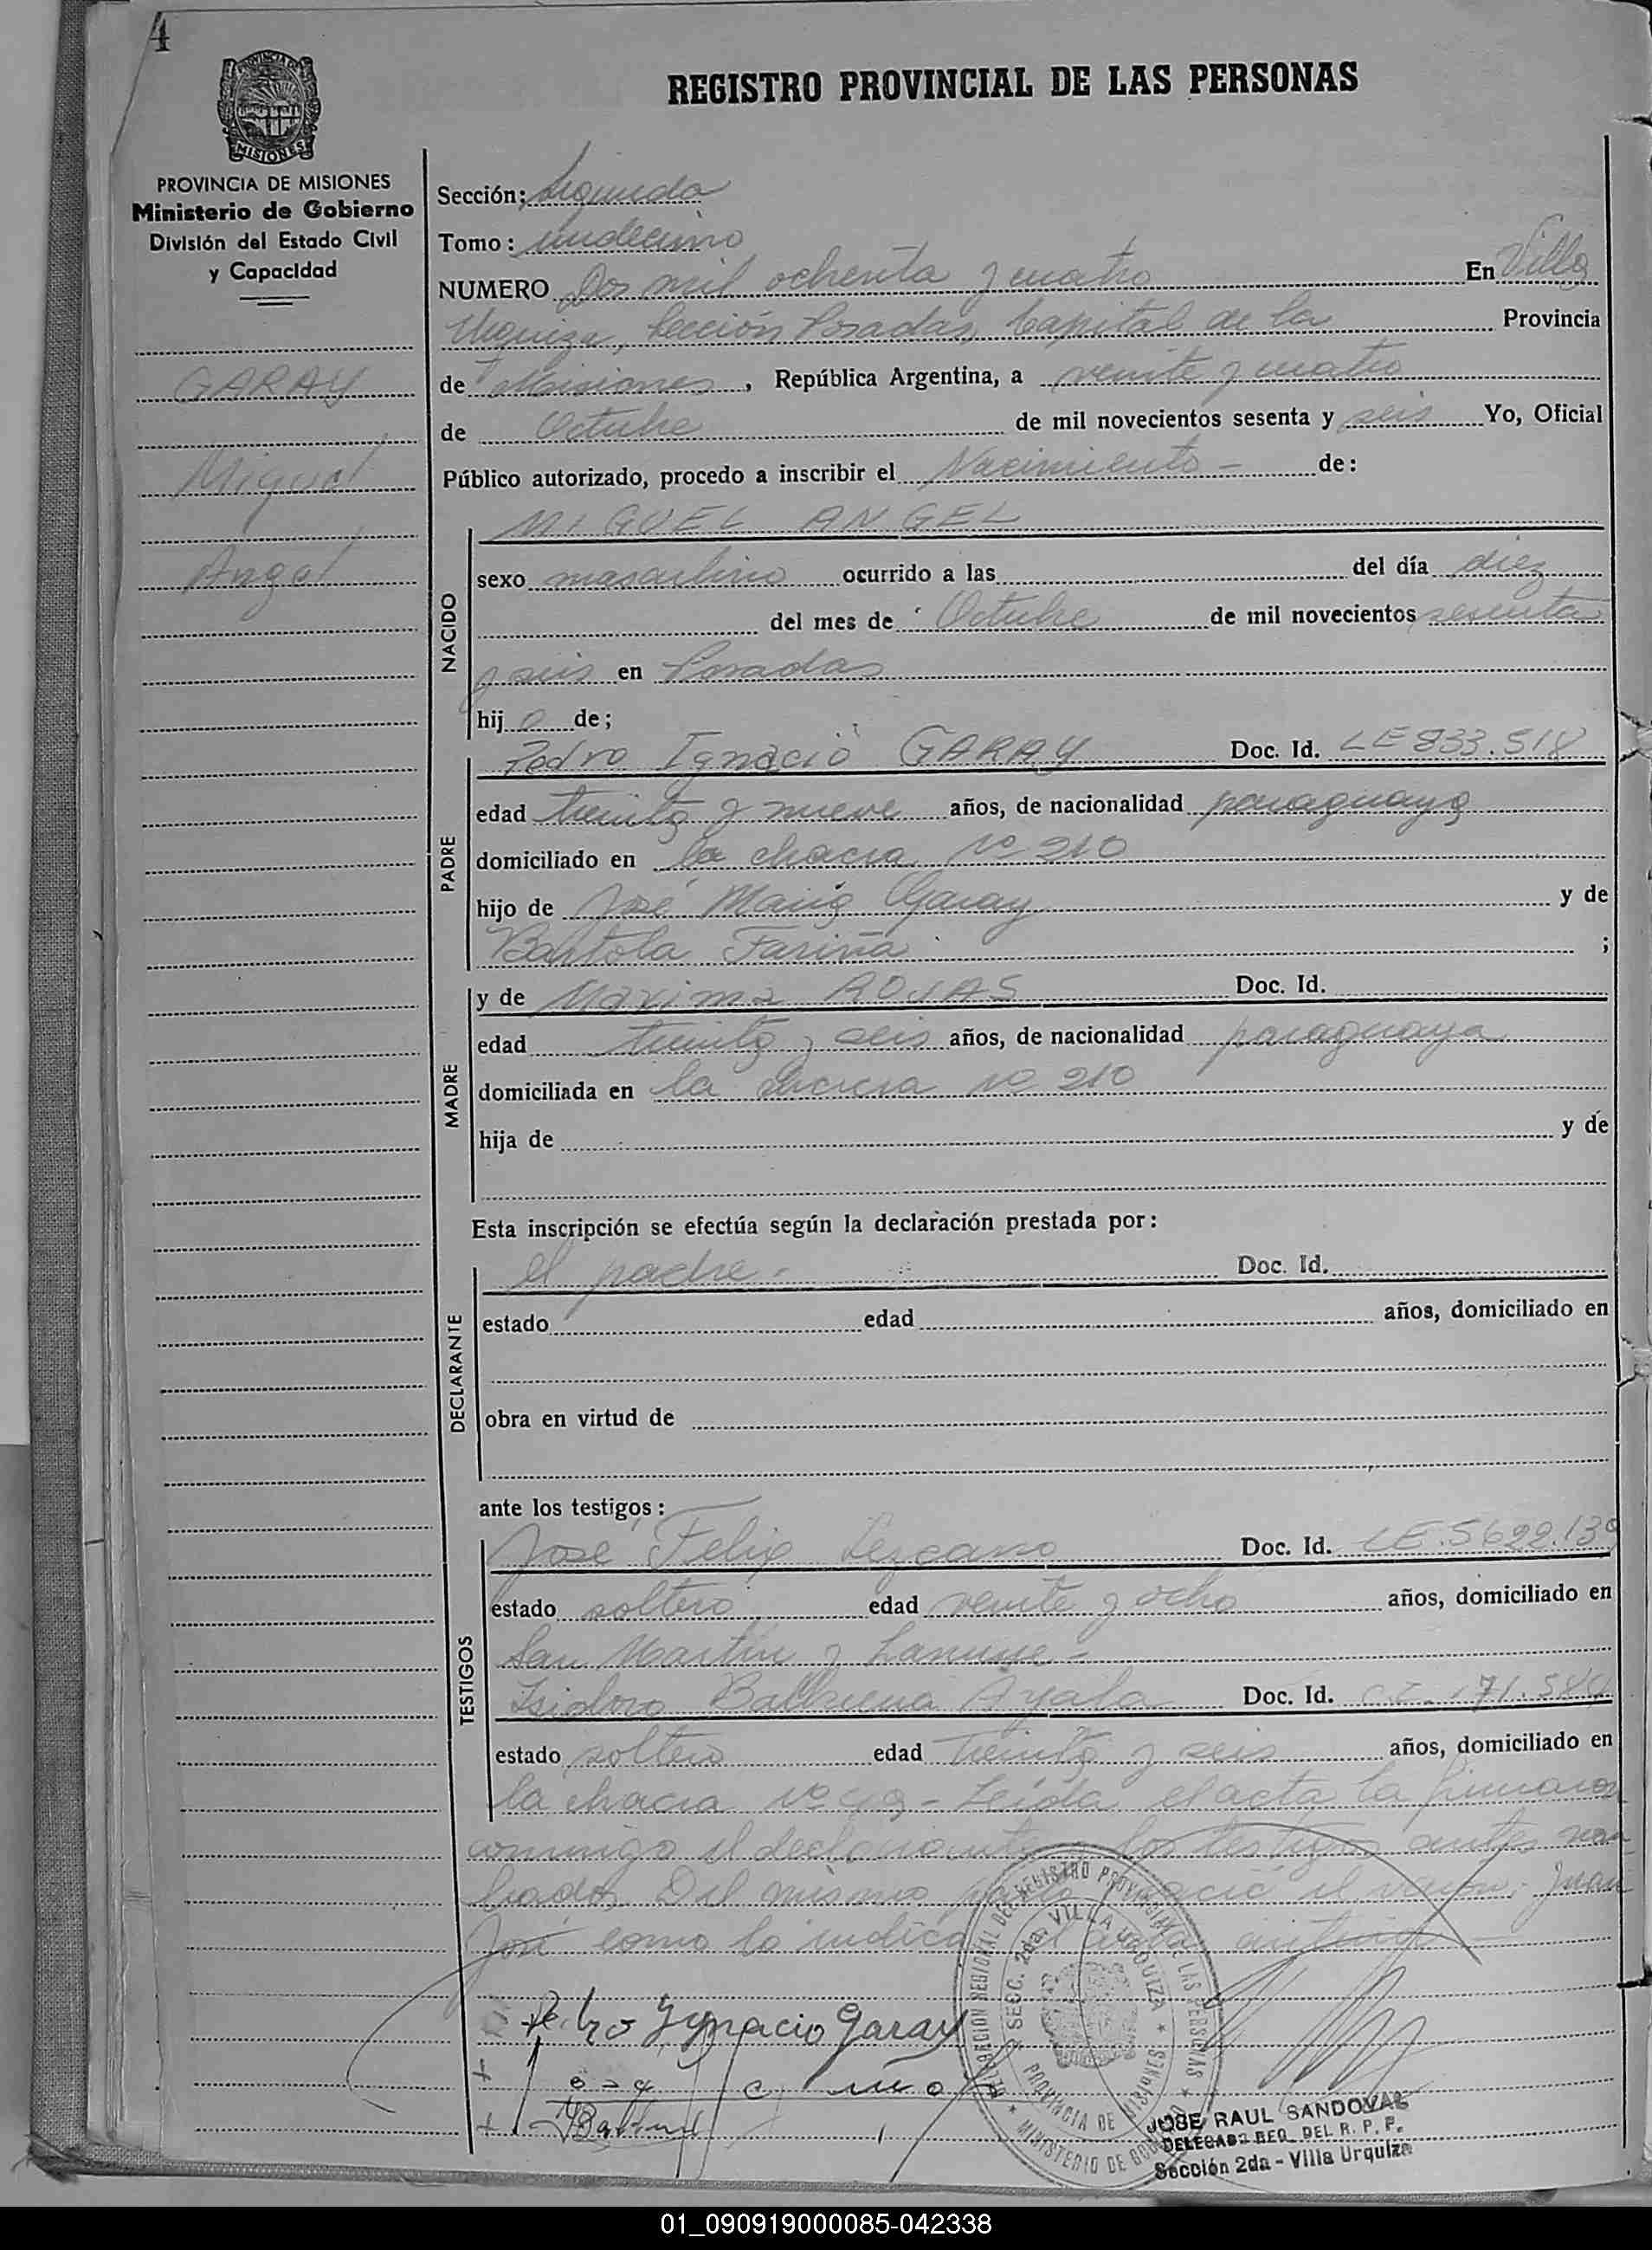 4
REGISTRO PROVINCIAL DE LAS PERSONAS
MISIONES
PROVINCIA DE MISIONES
Ministerio de Gobierno
División del Estado Civil
y Capacidad
GARAY
Miguel
Angel
Sección: Segunda
Tomo: undecimo
NUMERO Dos mil ochenta y cuatro En Villa
Urquiza, Sección Posadas, Capital de la Provincia
de Misiones, República Argentina, a veinte y cuatro
de Octubre de mil novecientos sesenta y seis Yo, Oficial
Público autorizado, procedo a inscribir el Nacimiento - de:
NACIDO
MIGUEL ANGEL
sexo masculino ocurrido a las del día diez
del mes de Octubre de mil novecientos sesenta
y seis en Posadas
hijo de;
PADRE
Pedro Ignacio GARAY Doc. Id. LE 833.518
edad treinta y nueve años, de nacionalidad paraguaya
domiciliado en la chacra Nº 210
hijo de José Maria Garay y de
Bartola Fariña ;
MADRE
y de Maxima ROJAS Doc. Id.
edad treinta y seis años, de nacionalidad paraguaya
domiciliada en la chacra Nº 210
hija de y de
Esta inscripción se efectúa según la declaración prestada por:
DECLARANTE
el padre. Doc. Id.
estado edad años, domiciliado en
obra en virtud de
ante los testigos:
TESTIGOS
José Felix Lezcano Doc. Id. LE.5622.139
estado soltero edad veinte y ocho años, domiciliado en
San Martin y Lanusse -
Isidoro Balbuena Ayala Doc. Id. C.I. 71.584
estado soltero edad treinta y seis años, domiciliado en
la chacra Nº 49 - Leida el acta la firmaron
conmigo el declarante y los testigos antes nom
brados. Del mismo parto nació el varon: Juan
José como lo indica el acta anterior -
Pedro Ygnacio Garay
DELEGACION REGIONAL DEL REGISTRO PROVINCIAL DE LAS PERSONAS
SECC. 2da. VILLA URQUIZA
PROVINCIA DE MISIONES
MINISTERIO DE GOBIERNO
JOSE RAUL SANDOVAL
DELEGADO REG. DEL R. P. P.
Sección 2da - Villa Urquiza
01_090919000085-042338